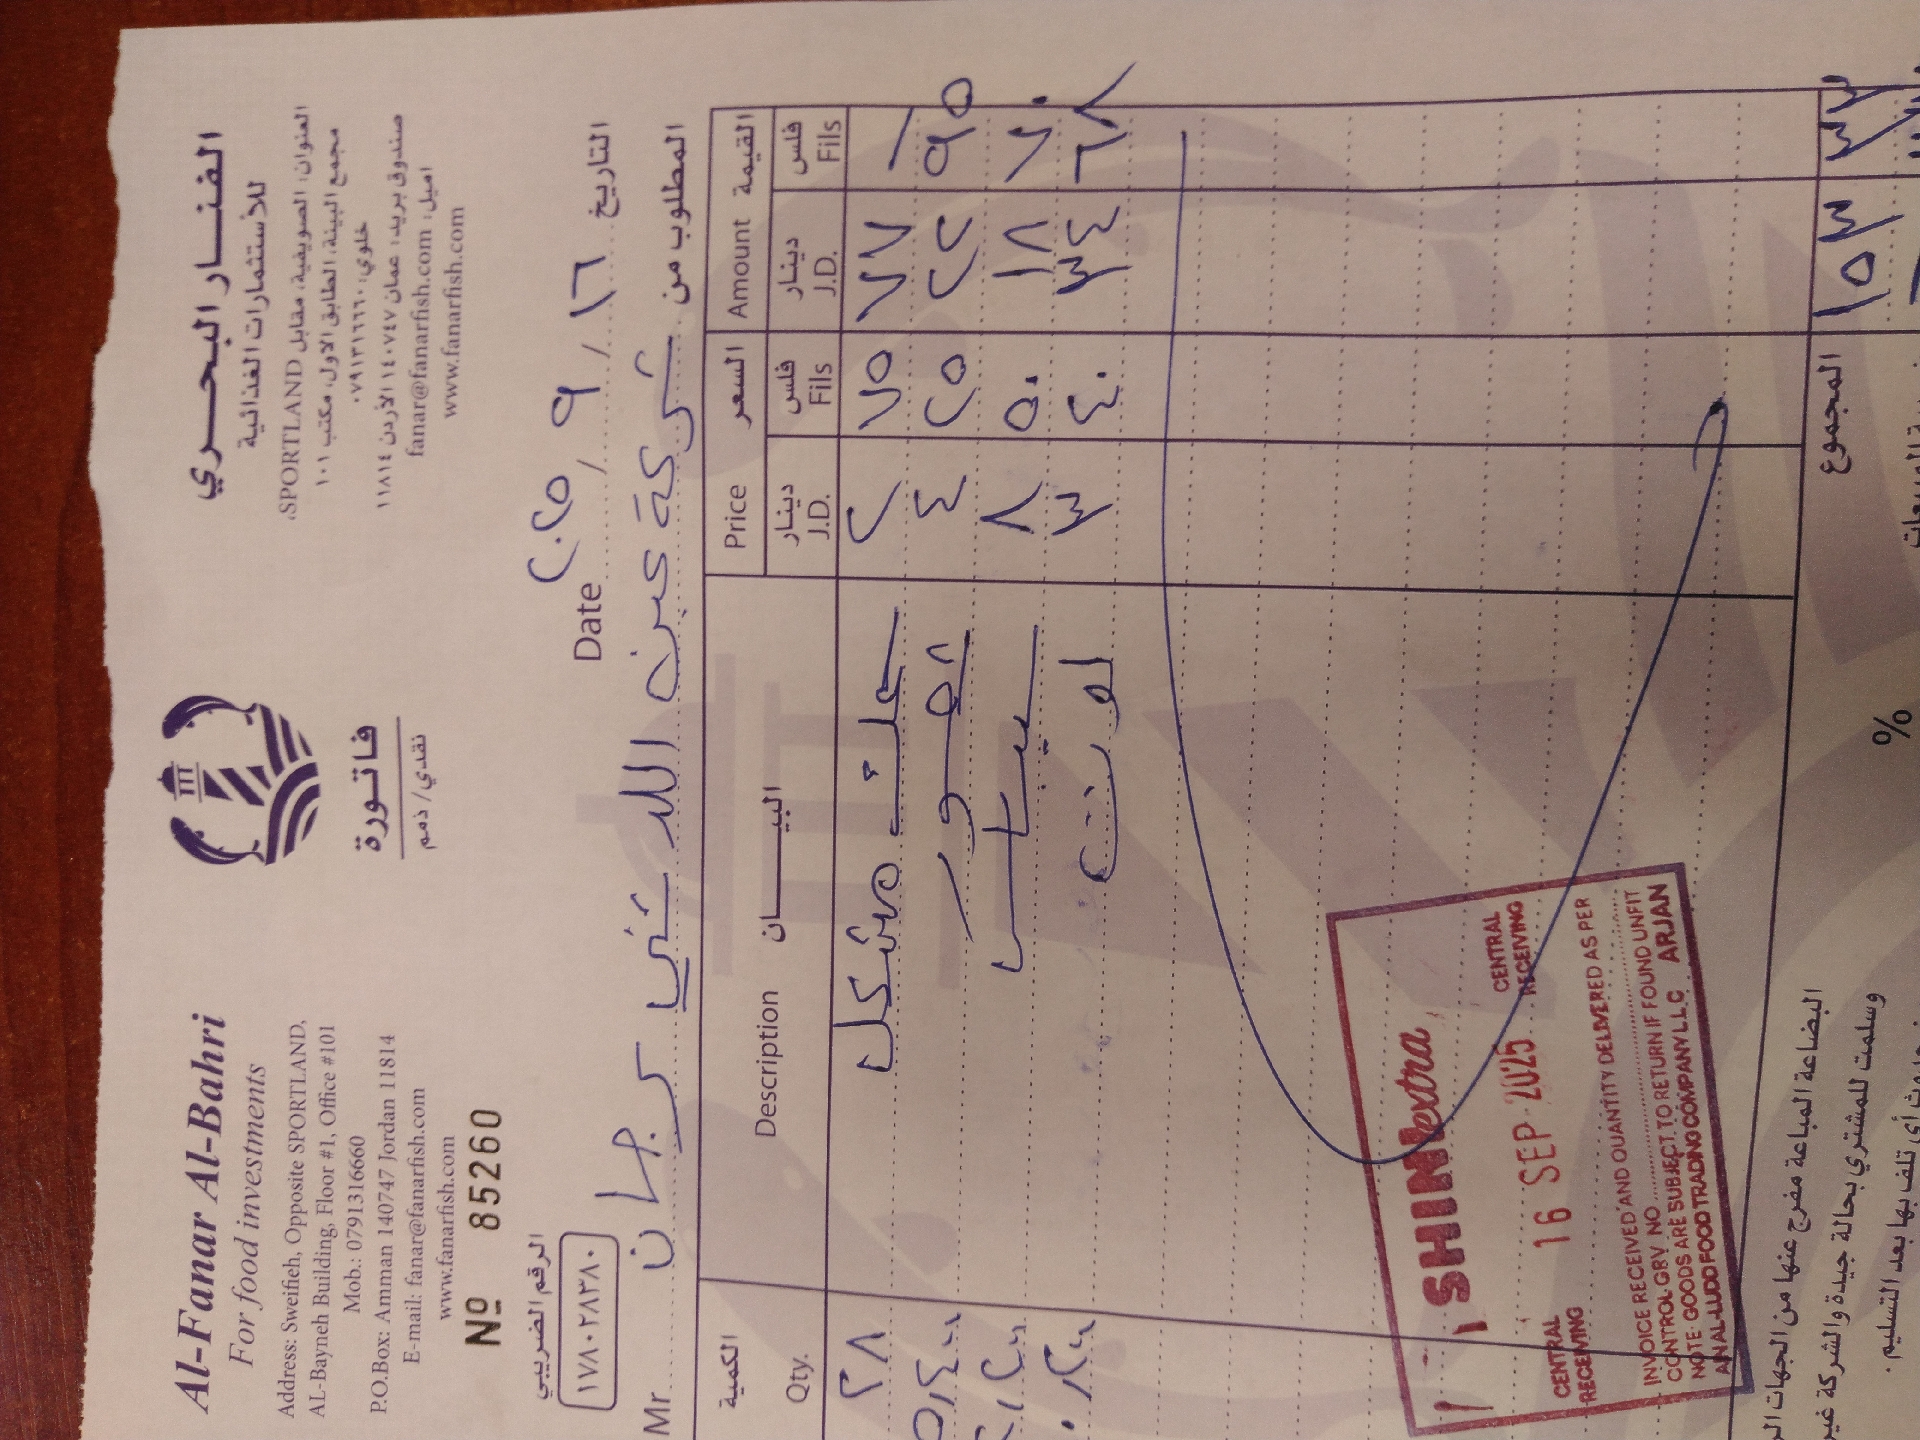 Al-Fanar Al-Bahri
For food investments
Address: Sweifieh, Opposite SPORTLAND,
AL-Bayneh Building, Floor #1, Office #101
Mob.: 0791316660
P.O.Box: Amman 140747 Jordan 11814
E-mail: fanar@fanarfish.com
www.fanarfish.com
الفنار البحري
للأستثمارات الغذائية
العنوان: الصويفية، مقابل SPORTLAND،
مجمع البينة، الطابق الاول، مكتب ١٠١
خلوي: ٠٧٩١٣١٦٦٦٠
صندوق بريد: عمان ١٤٠٧٤٧ الأردن ١١٨١٤
اميل: fanar@fanarfish.com
www.fanarfish.com
فاتورة
نقدي / ذمم
Nº 85260
الرقم الضريبي
١٧٨٠٢٨٣٨٠
Date ٢٠٢٥ / ٩ / ١٦ التاريخ
Mr المطلوب من شركة عين اللد
الكمية البيان السعر القيمة
Qty. Description Price Amount
دينار فلس دينار فلس
J.D. Fils J.D. Fils
٢٨ مشكل ٢ ٧٥ ٧٧ –
٤ ٢٥ ٢٢ ٩٥
٨ ٥٠ ١٨ ٧٠
٣ ٤٠ ٣٤ ٦٨
SHINI extra
CENTRAL RECEIVING 16 SEP 2025 CENTRAL RECEIVING
INVOICE RECEIVED AND QUANTITY DELIVERED AS PER
CONTROL GRV NO. ........ 
NOTE GOODS ARE SUBJECT TO RETURN IF FOUND UNFIT
AINAL-LUDD FOOD TRADING COMPANY L.L.C ARJAN
المجموع ١٥٣ ٣٣
البضاعة المباعة مفرج عنها من الجهات
وسلمت للمشتري بحالة جيدة والشركة غير
أي تلف بها بعد التسليم.
%